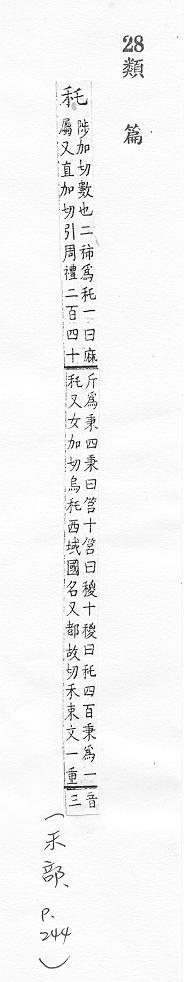 28
類篇
秅
陟加切數也二秭爲秅一曰麻
屬又直加切引周禮二百四十
斤爲秉四秉曰筥十筥曰稯十稯曰秅四百秉爲一
秅又女加切烏秅西域國名又都故切禾束文一重
音
三
(禾部、
p.
244)